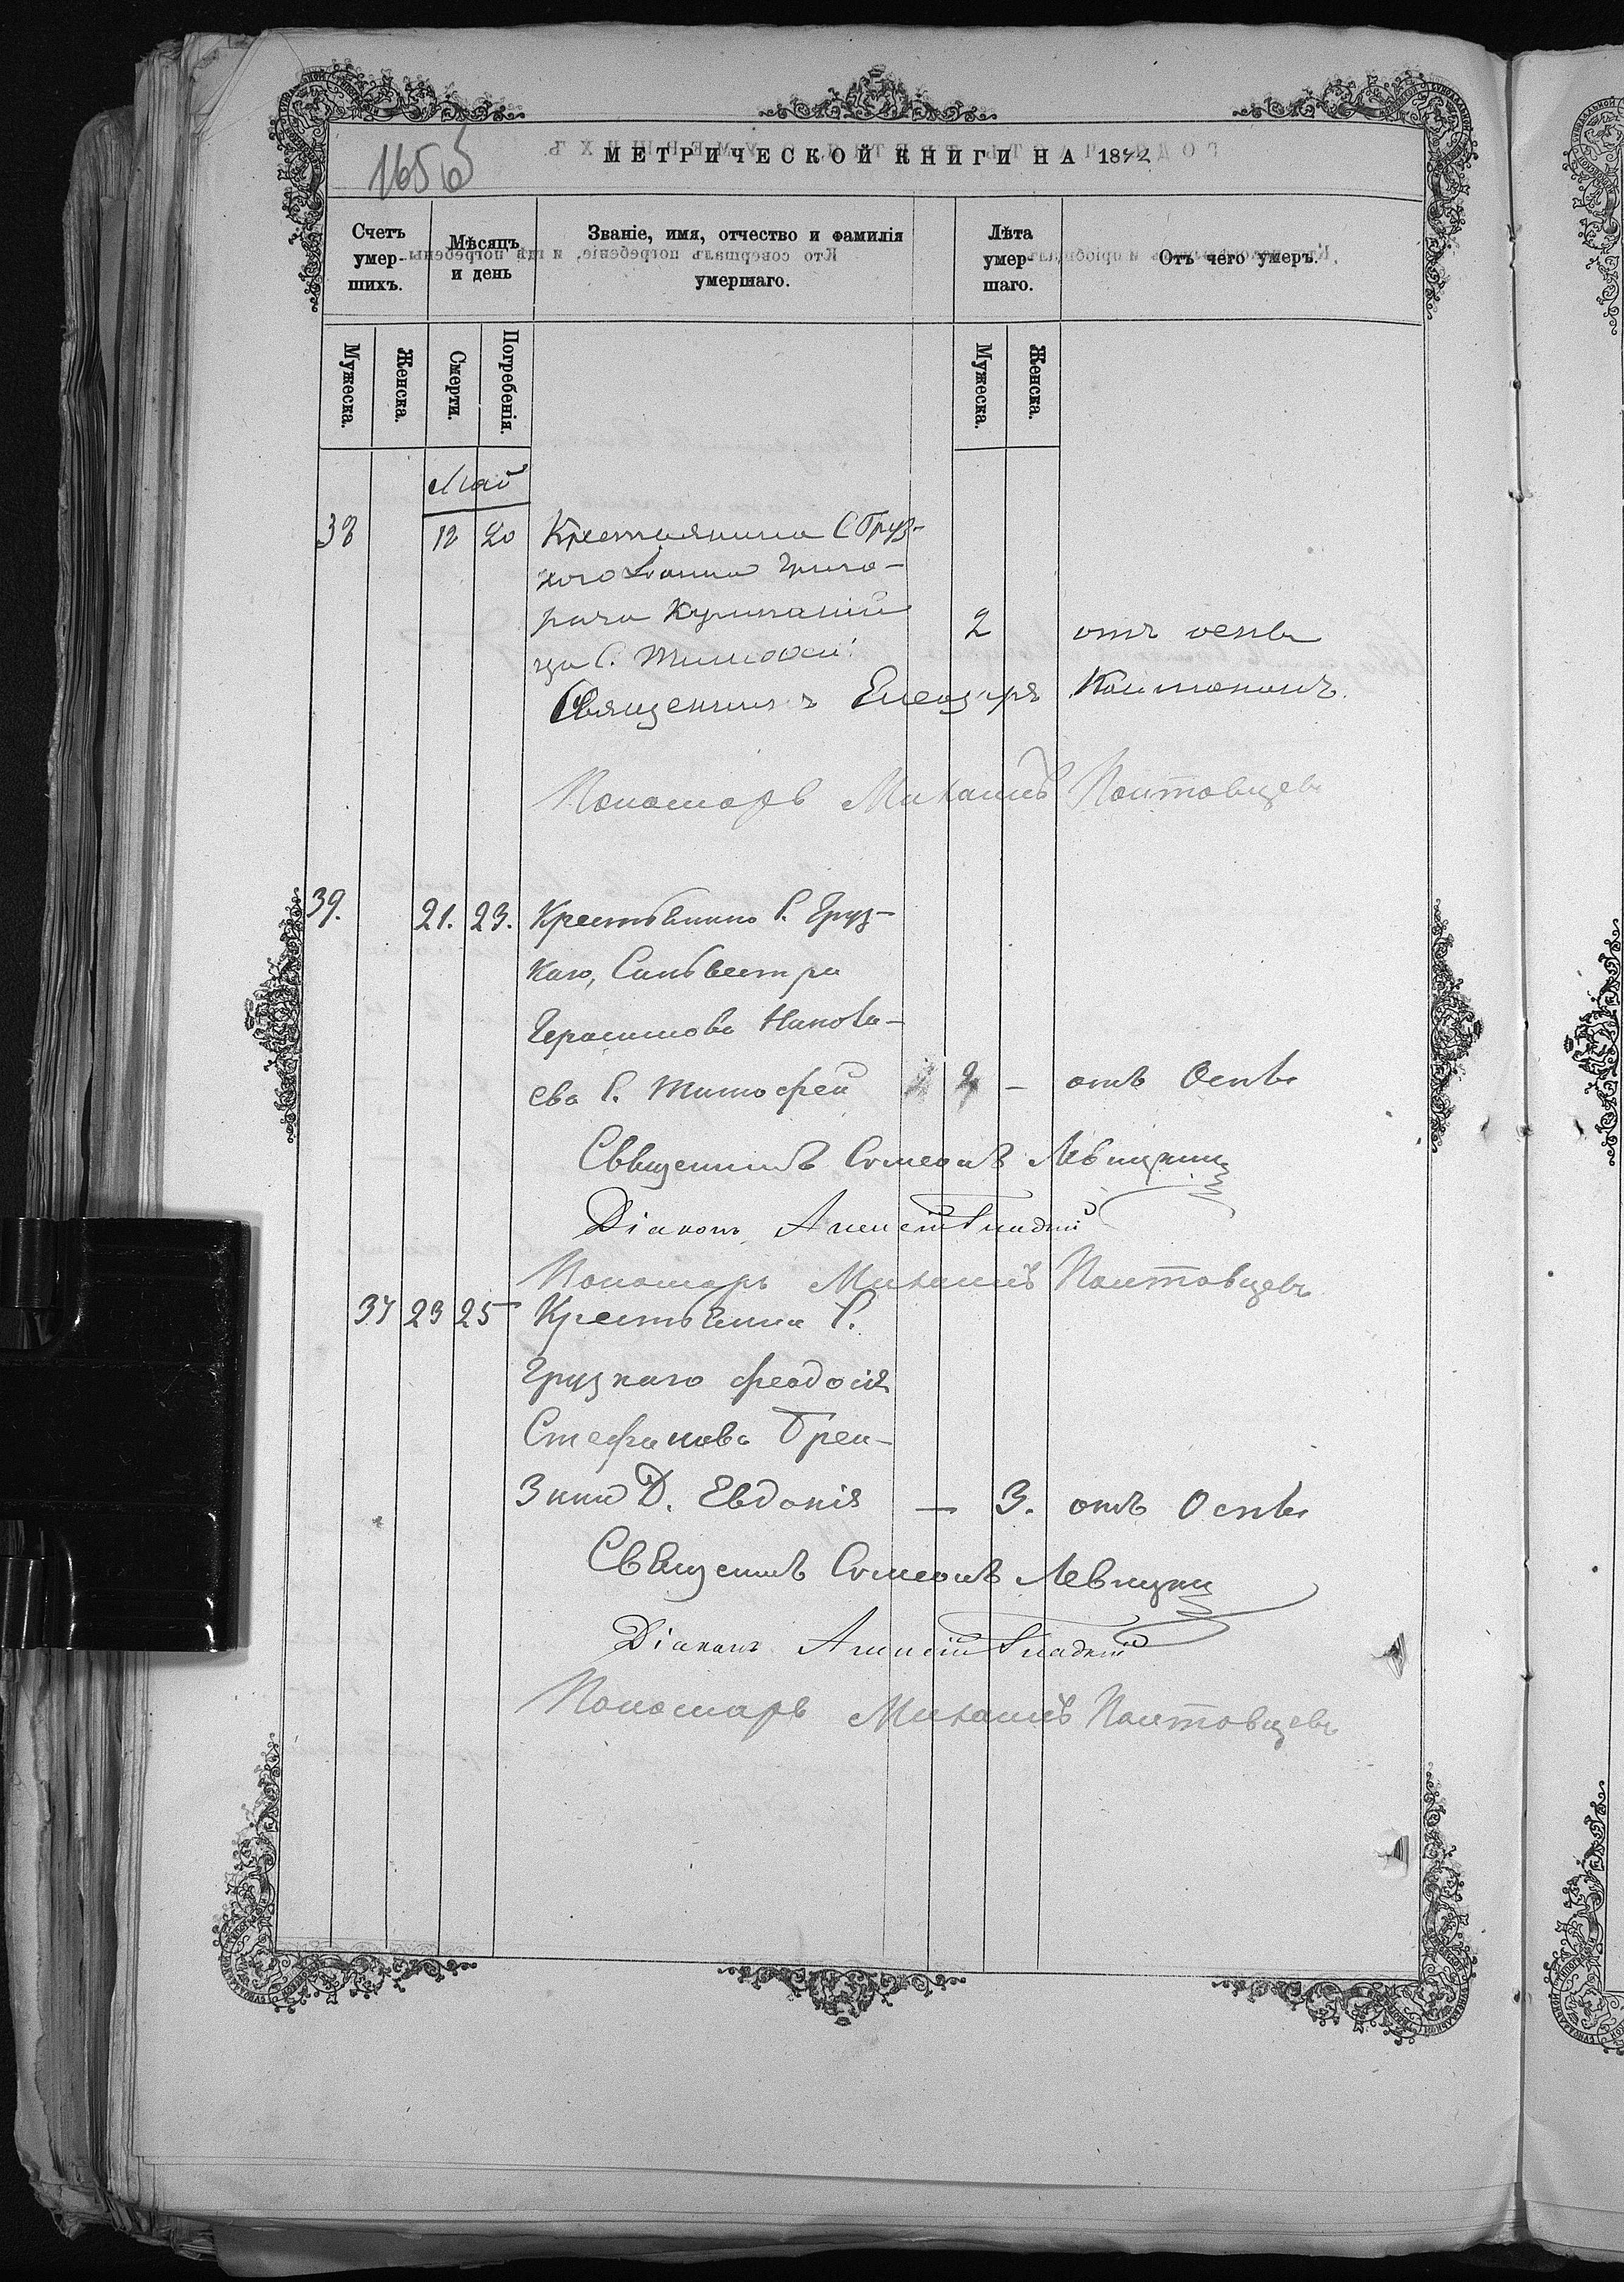 1656
МЕТРИЧЕСКОЙ КНИГИ НА 1872
Счетъ умер-шихъ.
Мѣсяцъ и день
Званіе, имя, отчество и фамилія умершаго.
Лѣта умер-шаго.
Отъ чего умеръ.
Мужеска.
Женска.
Смерти.
Погребенія.
Мужеска.
Женска.
Май
38 20 Крестьянина С Груз-
кого Іоанна Григо-
2 отъ оспы
ца С.
Священникъ Елеазаръ
Пономарь Михаилъ Полтовцевъ
39. 21. 23. Крестьянина С. Груз-
каго, Сильвестра
Герасимова
ева С. Тимофей 2 — отъ Оспы
Священникъ Симеонъ Левицкий
Діаконъ Алексій Гладкий
Пономарь Михаилъ Полтовцевъ
37 23 25 Крестьянина С.
Грузкаго Феодосія
Стефанова
Д. Евдокія — 3. отъ Оспы
Священникъ Симеонъ Левицкий
Діаконъ Алексій Гладкий
Пономарь Михаилъ Полтовцевъ